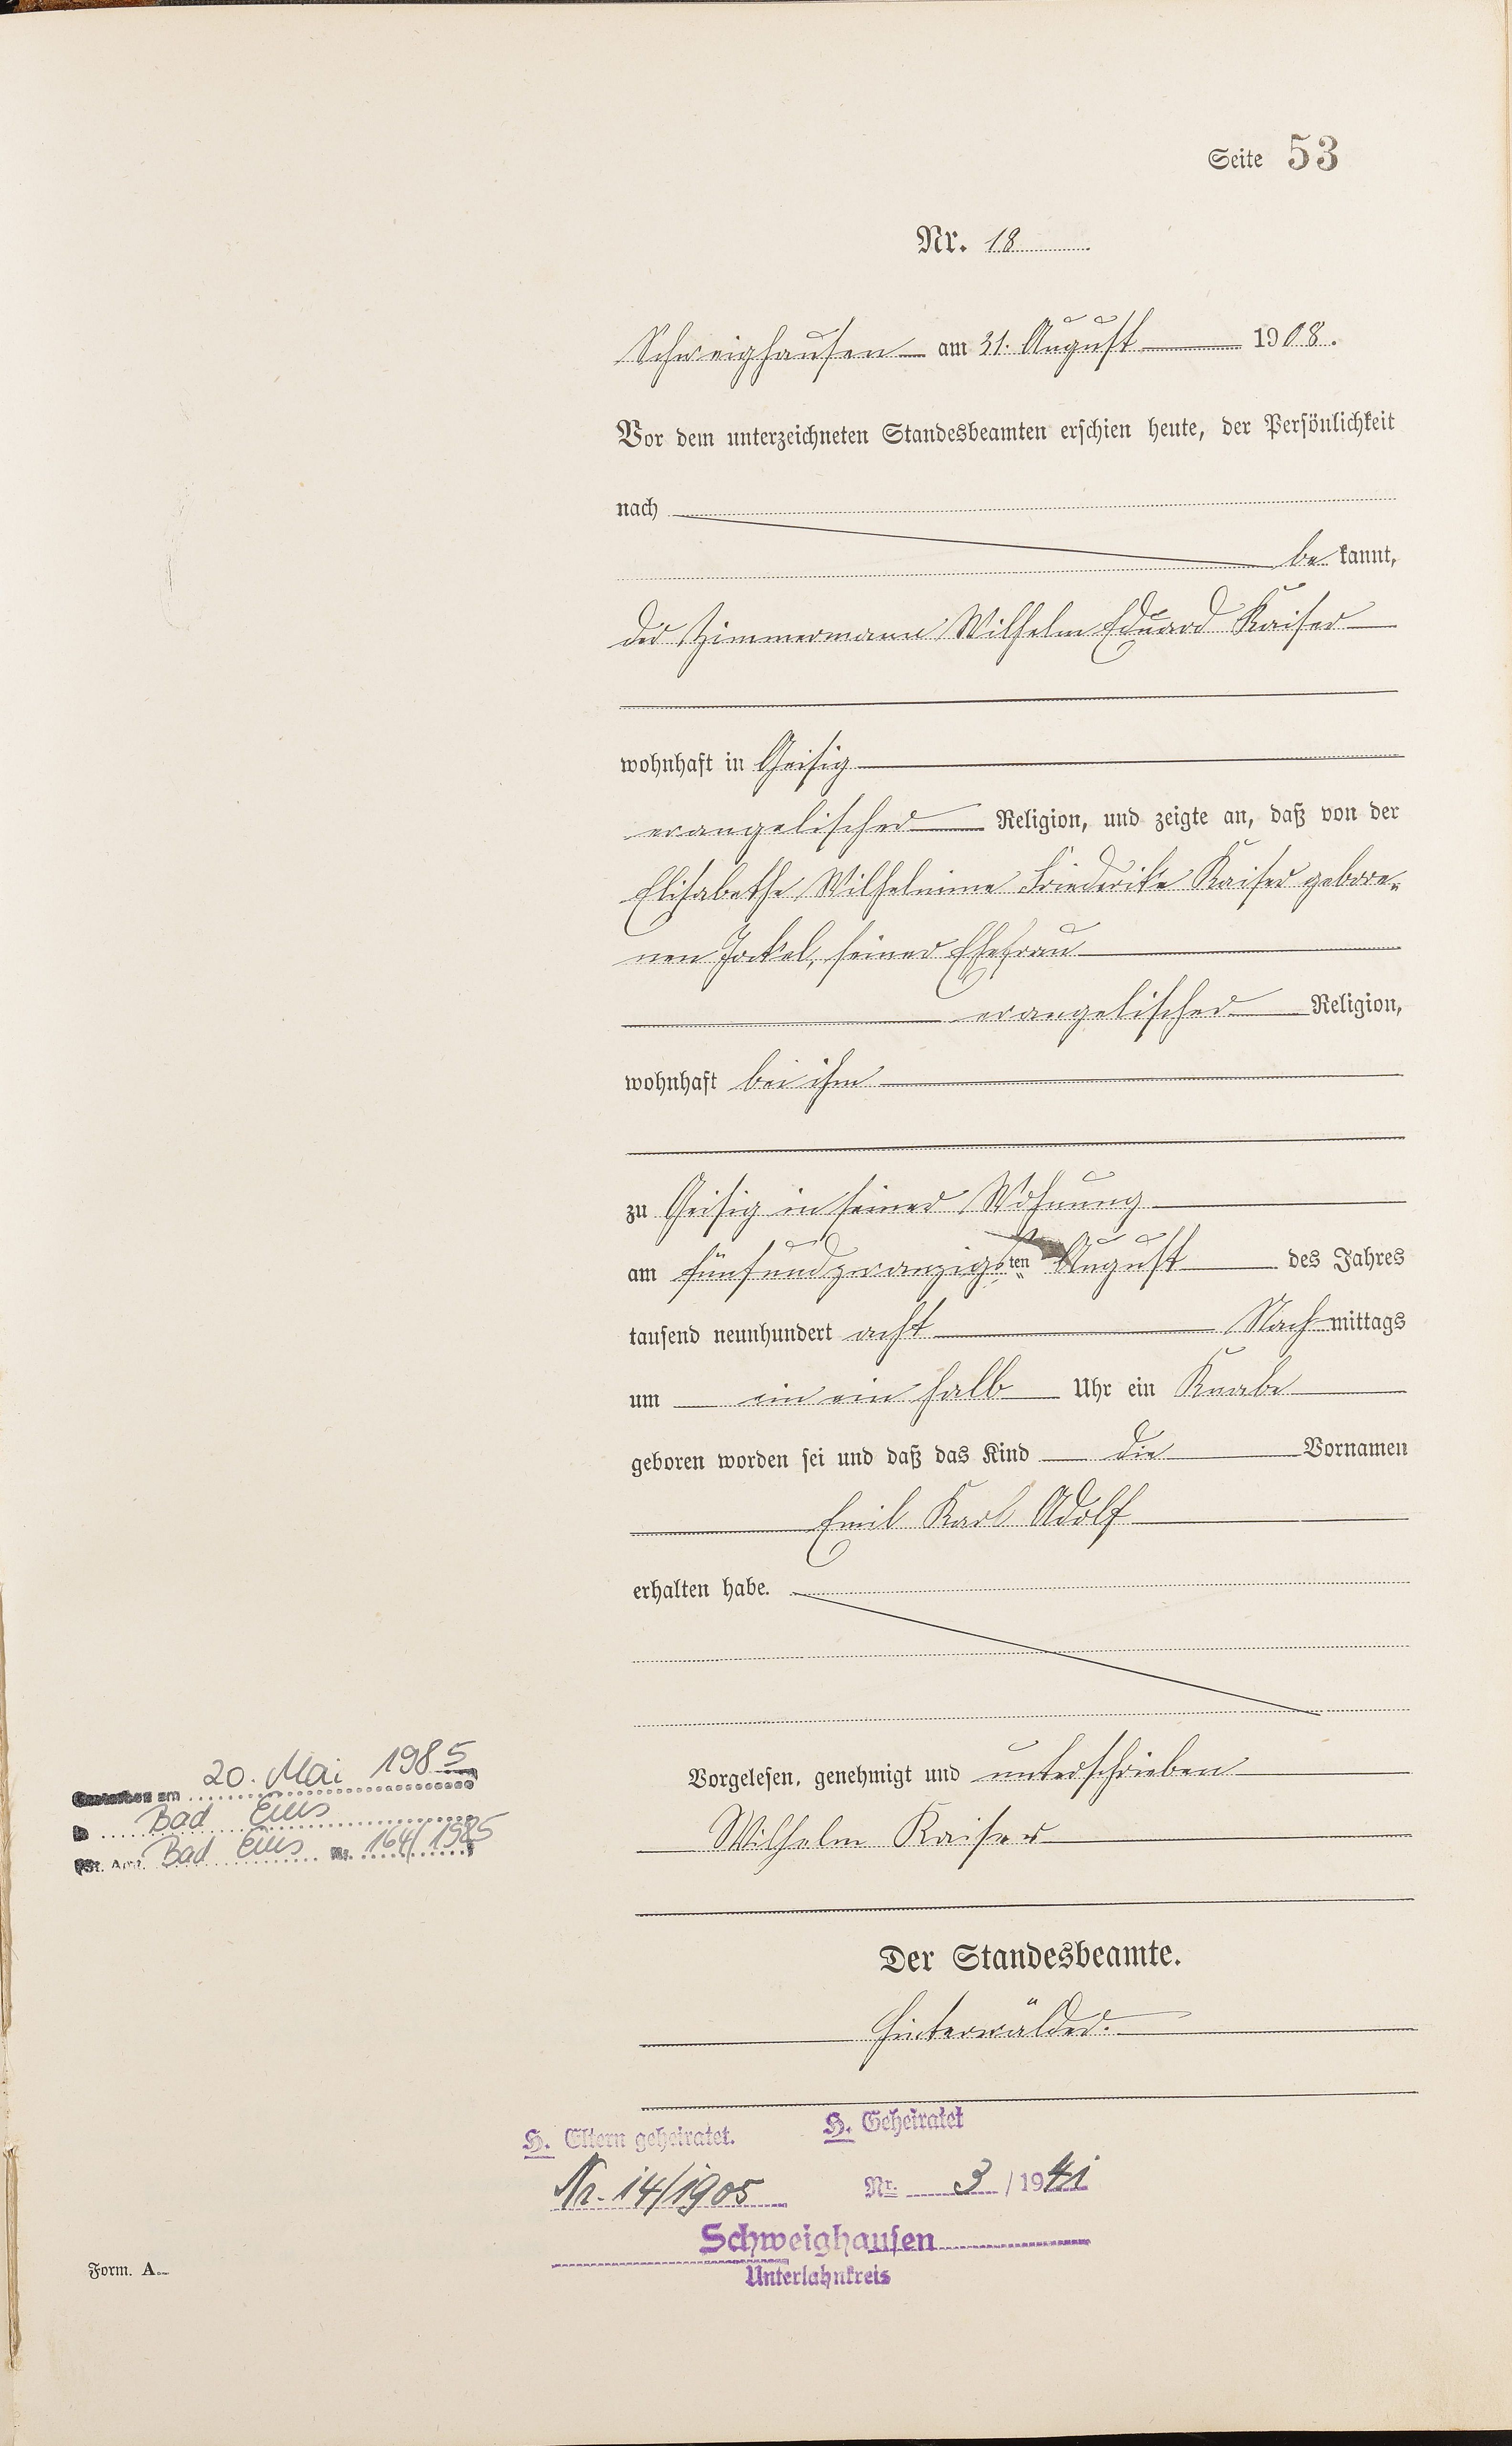 Seite 53
Nr. 18
Schweighausen am 31. August 1908.
Vor dem unterzeichneten Standesbeamten erschien heute, der Persönlichkeit
nach
be kannt,
der Zimmermann Wilhelm Eduard Kaiser
wohnhaft in Geisig
evangelischer Religion, und zeigte an, daß von der
Elisabethe Wilhelmine Friederike Kaiser gebore-
nen Jockel, seiner Ehefrau
evangelischer Religion,
wohnhaft bei ihm
zu Geisig in seiner Wohnung
am fünfundzwanzigsten August des Jahres
tausend neunhundert acht Nachmittags
um ein ein halb Uhr ein Knabe
geboren worden sei und daß das Kind die Vornamen
Emil Karl Adolf
erhalten habe.
Vorgelesen, genehmigt und unterschrieben
Wilhelm Kaiser
Der Standesbeamte.
Hinterwälder.
Gestorben am 20. Mai 1985
in Bad Ems
(St. Amt. Bad Ems Nr. 164/1985
H. Eltern geheiratet.
Nr. 14/1905
H. Geheiratet
Nr. 3/1941
Schweighausen
Unterlahnkreis
Form. A.